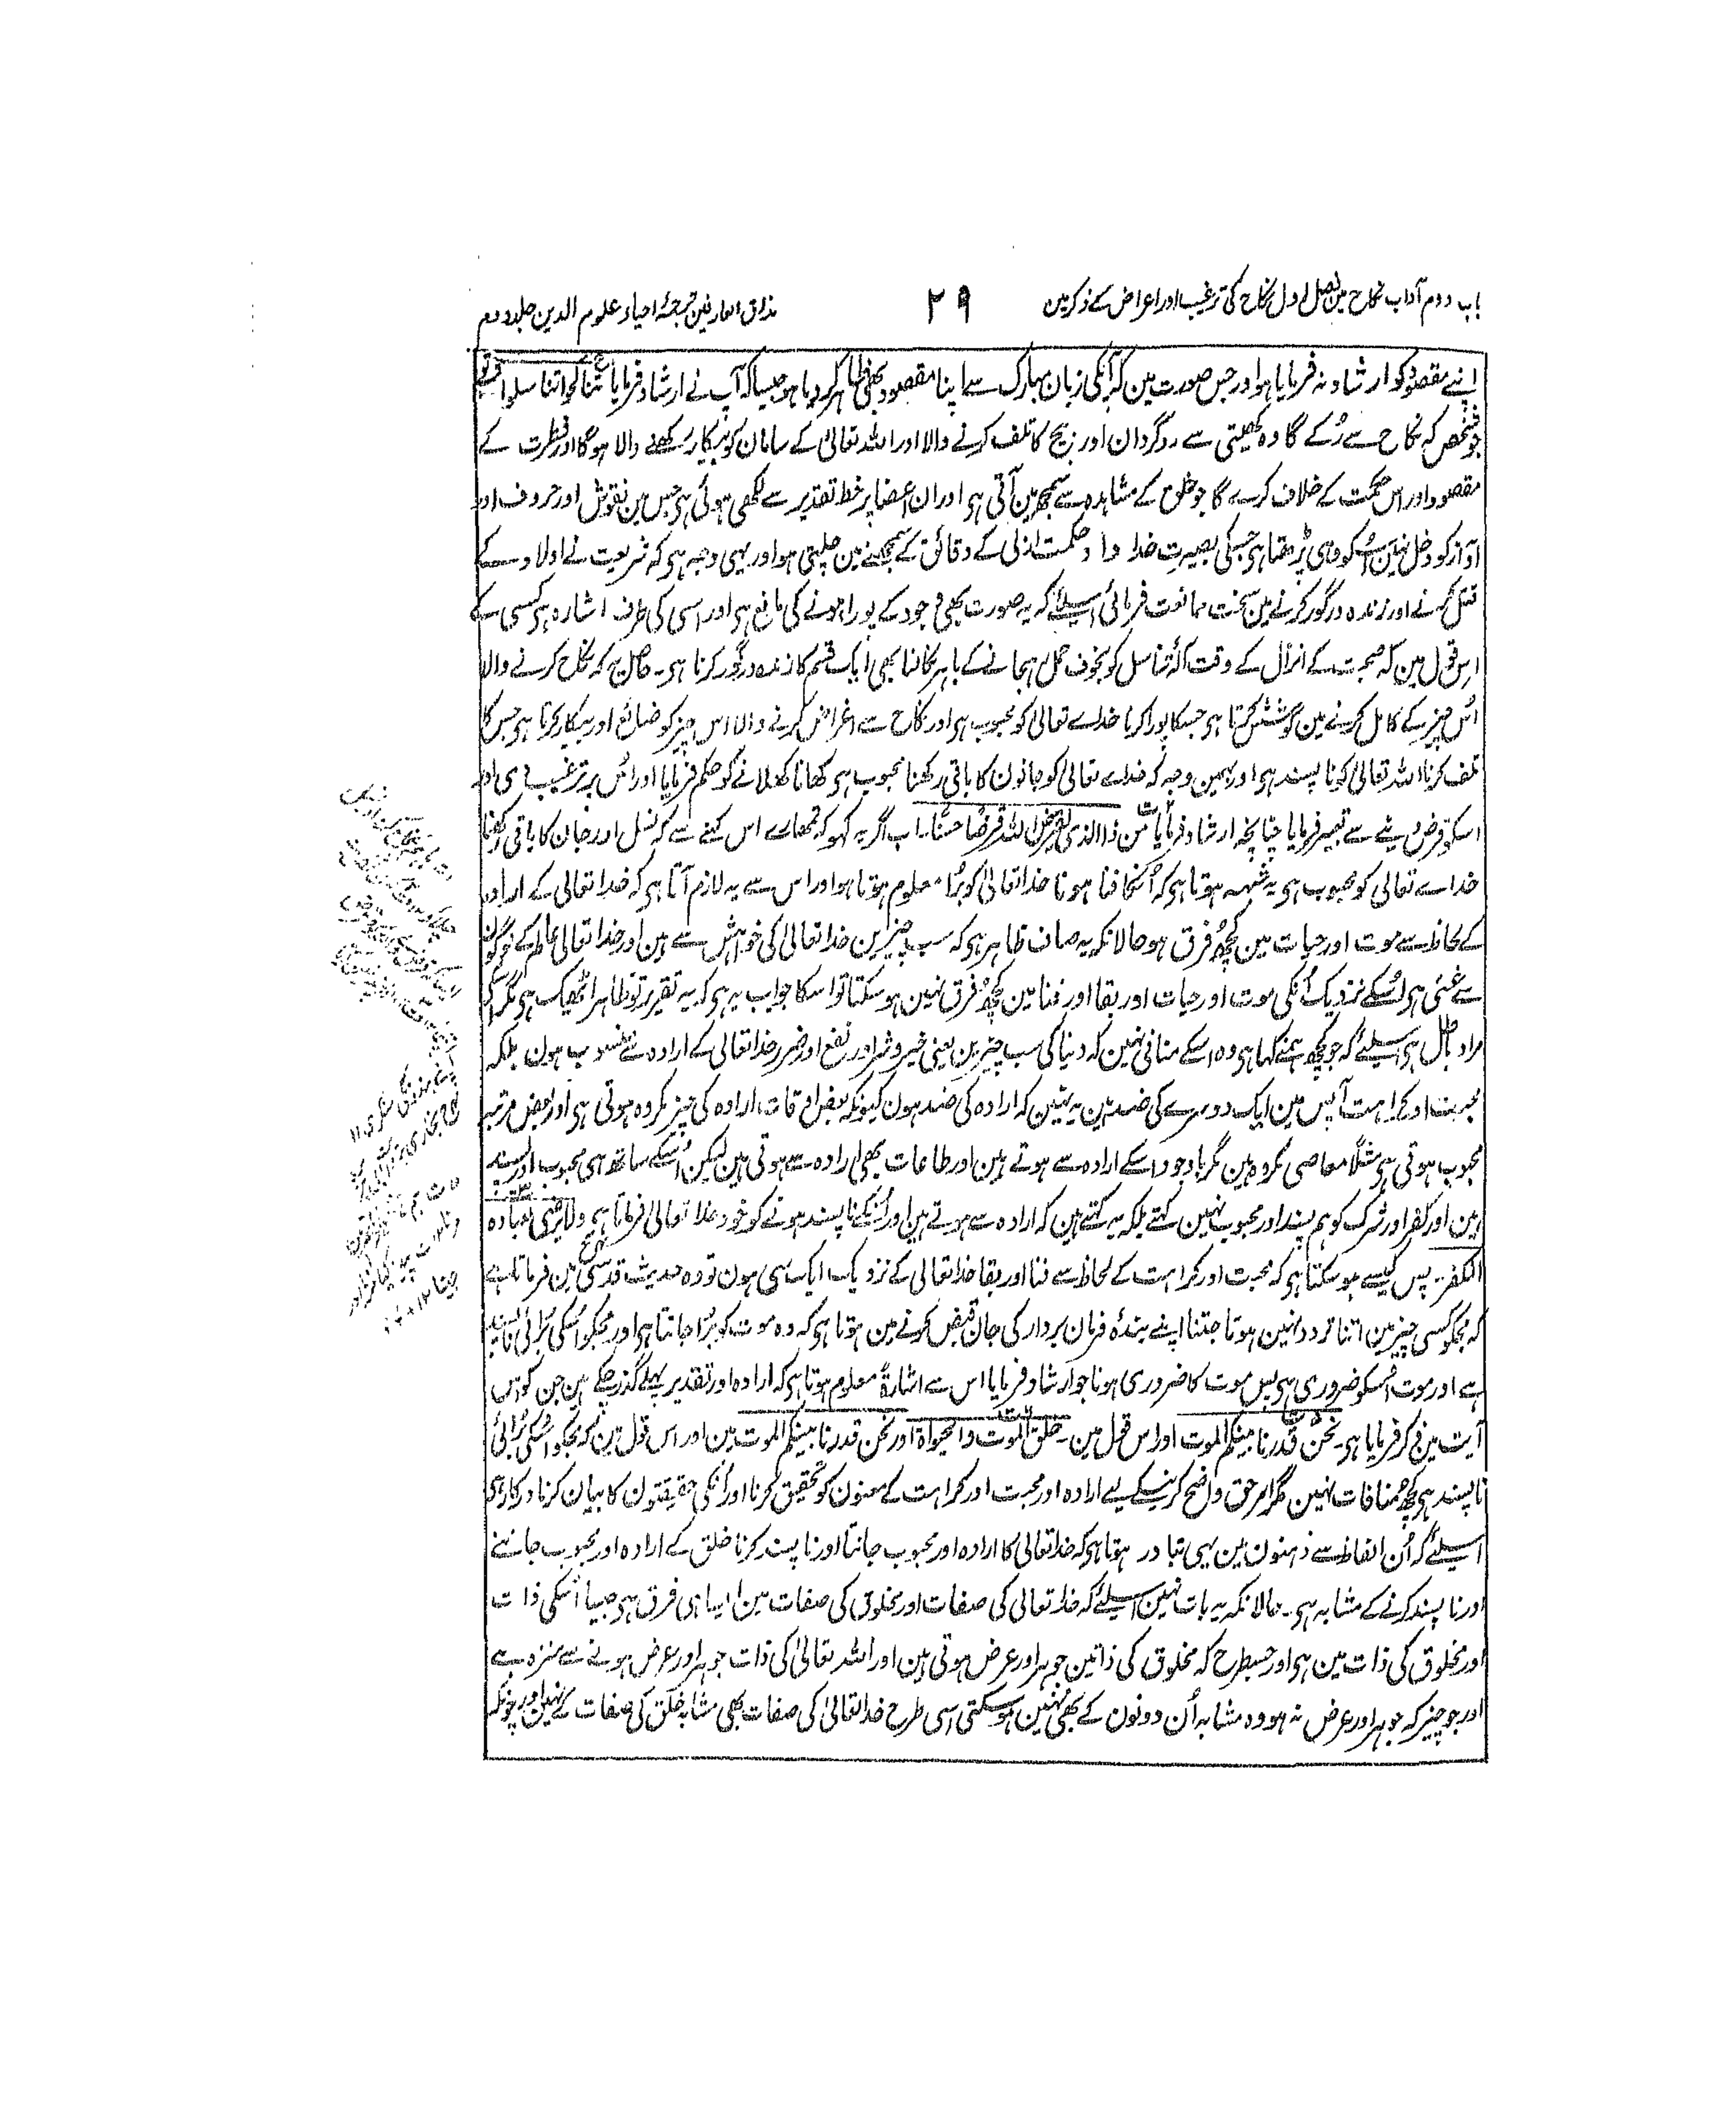 باب دوم آداب نکاح مین فصل اول نکاح کی ترغیب اور اعراض کے ذکر مین
۲۹
مذاق العارفین ترجمۂ احیاء علوم الدین جلد دوم
اپنے مقصود کو ارشاد نہ فرمایا ہو اور جس صورت مین کہ آپکی زبان مبارک سے اپنا مقصود بھی ظاہر کر دیا ہو جیسا کہ آپ نے ارشاد فرمایا تناکحوا تناسلوا تو
جو شخص کہ نکاح سے رُکے گا وہ کھیتی سے روگردان اور بیج کا تلف کرنے والا اور اللہ تعالیٰ کے سامان کو بیکار رکھنے والا ہوگا اور فطرت کے
مقصود اور اس حکمت کے خلاف کرے گا جو خلق کے مشاہدہ سے سمجھ مین آتی ہی اور ان اعضا پر خط تقدیر سے لکھی ہوئی ہی جس مین نقوش اور حروف اور
آواز کو دخل نہین اُسکو وہی پڑھتا ہی جسکی بصیرت خداداد حکمت ازلی کے دقائق کے سمجھنے مین چلتی ہو اور یہی وجہ ہی کہ شریعت نے اولاد کے
قتل کرنے اور زندہ درگور کرنے مین سخت ممانعت فرمائی اسیلئے کہ یہ صورت بھی وجود کے پورا ہونے کی مانع ہی اور اسی کی طرف اشارہ ہی کسی کے
اِس قول مین کہ صحبت کے انزال کے وقت آلۂ تناسل کو بخوف حمل رہجانے کے باہر نکالنا بھی ایک قسم کا زندہ درگور کرنا ہی۔ حاصل یہ کہ نکاح کرنے والا
اُس چیز کے کامل کرنے مین کوشش کرتا ہی جسکا پورا کرنا خداے تعالیٰ کو محبوب ہی اور نکاح سے اعراض کرنے والا اس چیز کو ضائع اور بیکار کرتا ہی جس کا
تلف کرنا اللہ تعالیٰ کو ناپسند ہی اور بہمین وجہ کہ خداے تعالیٰ کو جانون کا باقی رکھنا محبوب ہی کھانا کھلانے کو حکم فرمایا اور اُس پر ترغیب دی اور
اسکو قرض دینے سے تعبیر فرمایا چنانچہ ارشاد فرمایا من ذا الذی یقرض اللہ قرضًا حسنًا۔ اب اگر یہ کہو کہ تمھارے اس کہنے سے کہ نسل اور جان کا باقی رکھنا
خداے تعالی کو محبوب ہی یہ شبہہ ہوتا ہی کہ اُنکا فنا ہونا خدا تعالیٰ کو بُرا معلوم ہوتا ہو اور اس سے یہ لازم آتا ہی کہ خدا تعالی کے ارادہ
کے لحاظ سے موت اور حیات مین کچھ فرق ہو حالانکہ یہ صاف ظاہر ہی کہ سب چیزین خدا تعالیٰ کی خواہش سے ہین اور خدا تعالی عالم کے لوگون
سے غنی ہی اُسکے نزدیک اُنکی موت اور حیات اور بقا اور فنا مین کچھ فرق نہین ہو سکتا تو اسکا جواب یہ ہی کہ یہ تقریر تو ظاہرا ٹھیک ہی مگر اسکی
مراد باطل ہی اسیلئے کہ جو کچھ ہمنے کہا ہی وہ اسکے منافی نہین کہ دنیا کی سب چیزین یعنی خیر و شر اور نفع اور ضرر خدا تعالی کے ارادہ سے منسوب ہون بلکہ
محبت اور کراہت آپس مین ایک دوسرے کی ضد ہین یہ نہین کہ ارادہ کی ضد ہون کیونکہ بعض اوقات ارادہ کی چیز مکروہ ہوتی ہی اور بعض مرتبہ
محبوب ہوتی ہی مثلًا معاصی مکروہ ہین مگر باوجود اسکے ارادہ سے ہوتے ہین اور طاعات بھی ارادہ سے ہوتی ہین لیکن اُسکے ساتھ ہی محبوب اور پسند
ہین اور کفر اور شرک کو ہم پسند اور محبوب نہین کہتے بلکہ یہ کہتے ہین کہ ارادہ سے ہوتے ہین اور اُنکے ناپسند ہونے کو خود خدا تعالیٰ فرماتا ہی ولا یرضی لعبادہ
الکفر۔ پس کیسے ہو سکتا ہی کہ محبت اور کراہت کے لحاظ سے فنا اور بقا خدا تعالی کے نزدیک ایک سی ہون تو وہ حدیث قدسی مین فرماتا ہے
کہ مجکو کسی چیز مین اتنا تردد نہین ہوتا جتنا اپنے بندۂ فرمان بردار کی جان قبض کرنے مین ہوتا ہی کہ وہ موت کو بُرا جانتا ہی اور مجکو اُسکی بُرائی ناپسند
ہے اور موت اُسکو ضروری ہی پس موت کا ضروری ہونا جو ارشاد فرمایا اس سے اشارۃً معلوم ہوتا ہی کہ ارادہ اور تقدیر پہلے گذر چکے ہین جن کو اس
آیت مین ذکر فرمایا ہی۔ نحن قدرنا بینکم الموت اور اس قول مین۔ خلق الموت والحیواۃ اور نحن قدرنا بینکم الموت مین اور اس قول مین کہ مجکو اُسکی بُرائی
ناپسند ہی کچھ منافات نہین مگر امر حق واضح کرنیکے لیے ارادہ اور محبت اور کراہت کے معنون کو تحقیق کرنا اور اُنکی حقیقتون کا بیان کرنا درکار ہی
اسیلئے کہ اُن الفاظ سے ذہنون مین یہی تبادر ہوتا ہی کہ خدا تعالی کا ارادہ اور محبوب جاننا اور ناپسند کرنا خلق کے ارادہ اور محبوب جاننے
اور ناپسند کرنے کے مشابہ ہی۔ حالانکہ یہ بات نہین اسیلئے کہ خدا تعالی کی صفات اور مخلوق کی صفات مین ایسا ہی فرق ہی جیسا اُسکی ذات
اور مخلوق کی ذات مین ہی اور جسطرح کہ مخلوق کی ذاتین جوہر اور عرض ہوتی ہین اور اللہ تعالیٰ کی ذات جوہر اور عرض ہونے سے منزہ ہے
اور جو چیز کہ جوہر اور عرض نہ ہو وہ مشابہ اُن دونون کے بھی نہین ہو سکتی اسی طرح خدا تعالیٰ کی صفات بھی مشابہ خلق کی صفات کے نہین اور چونکہ